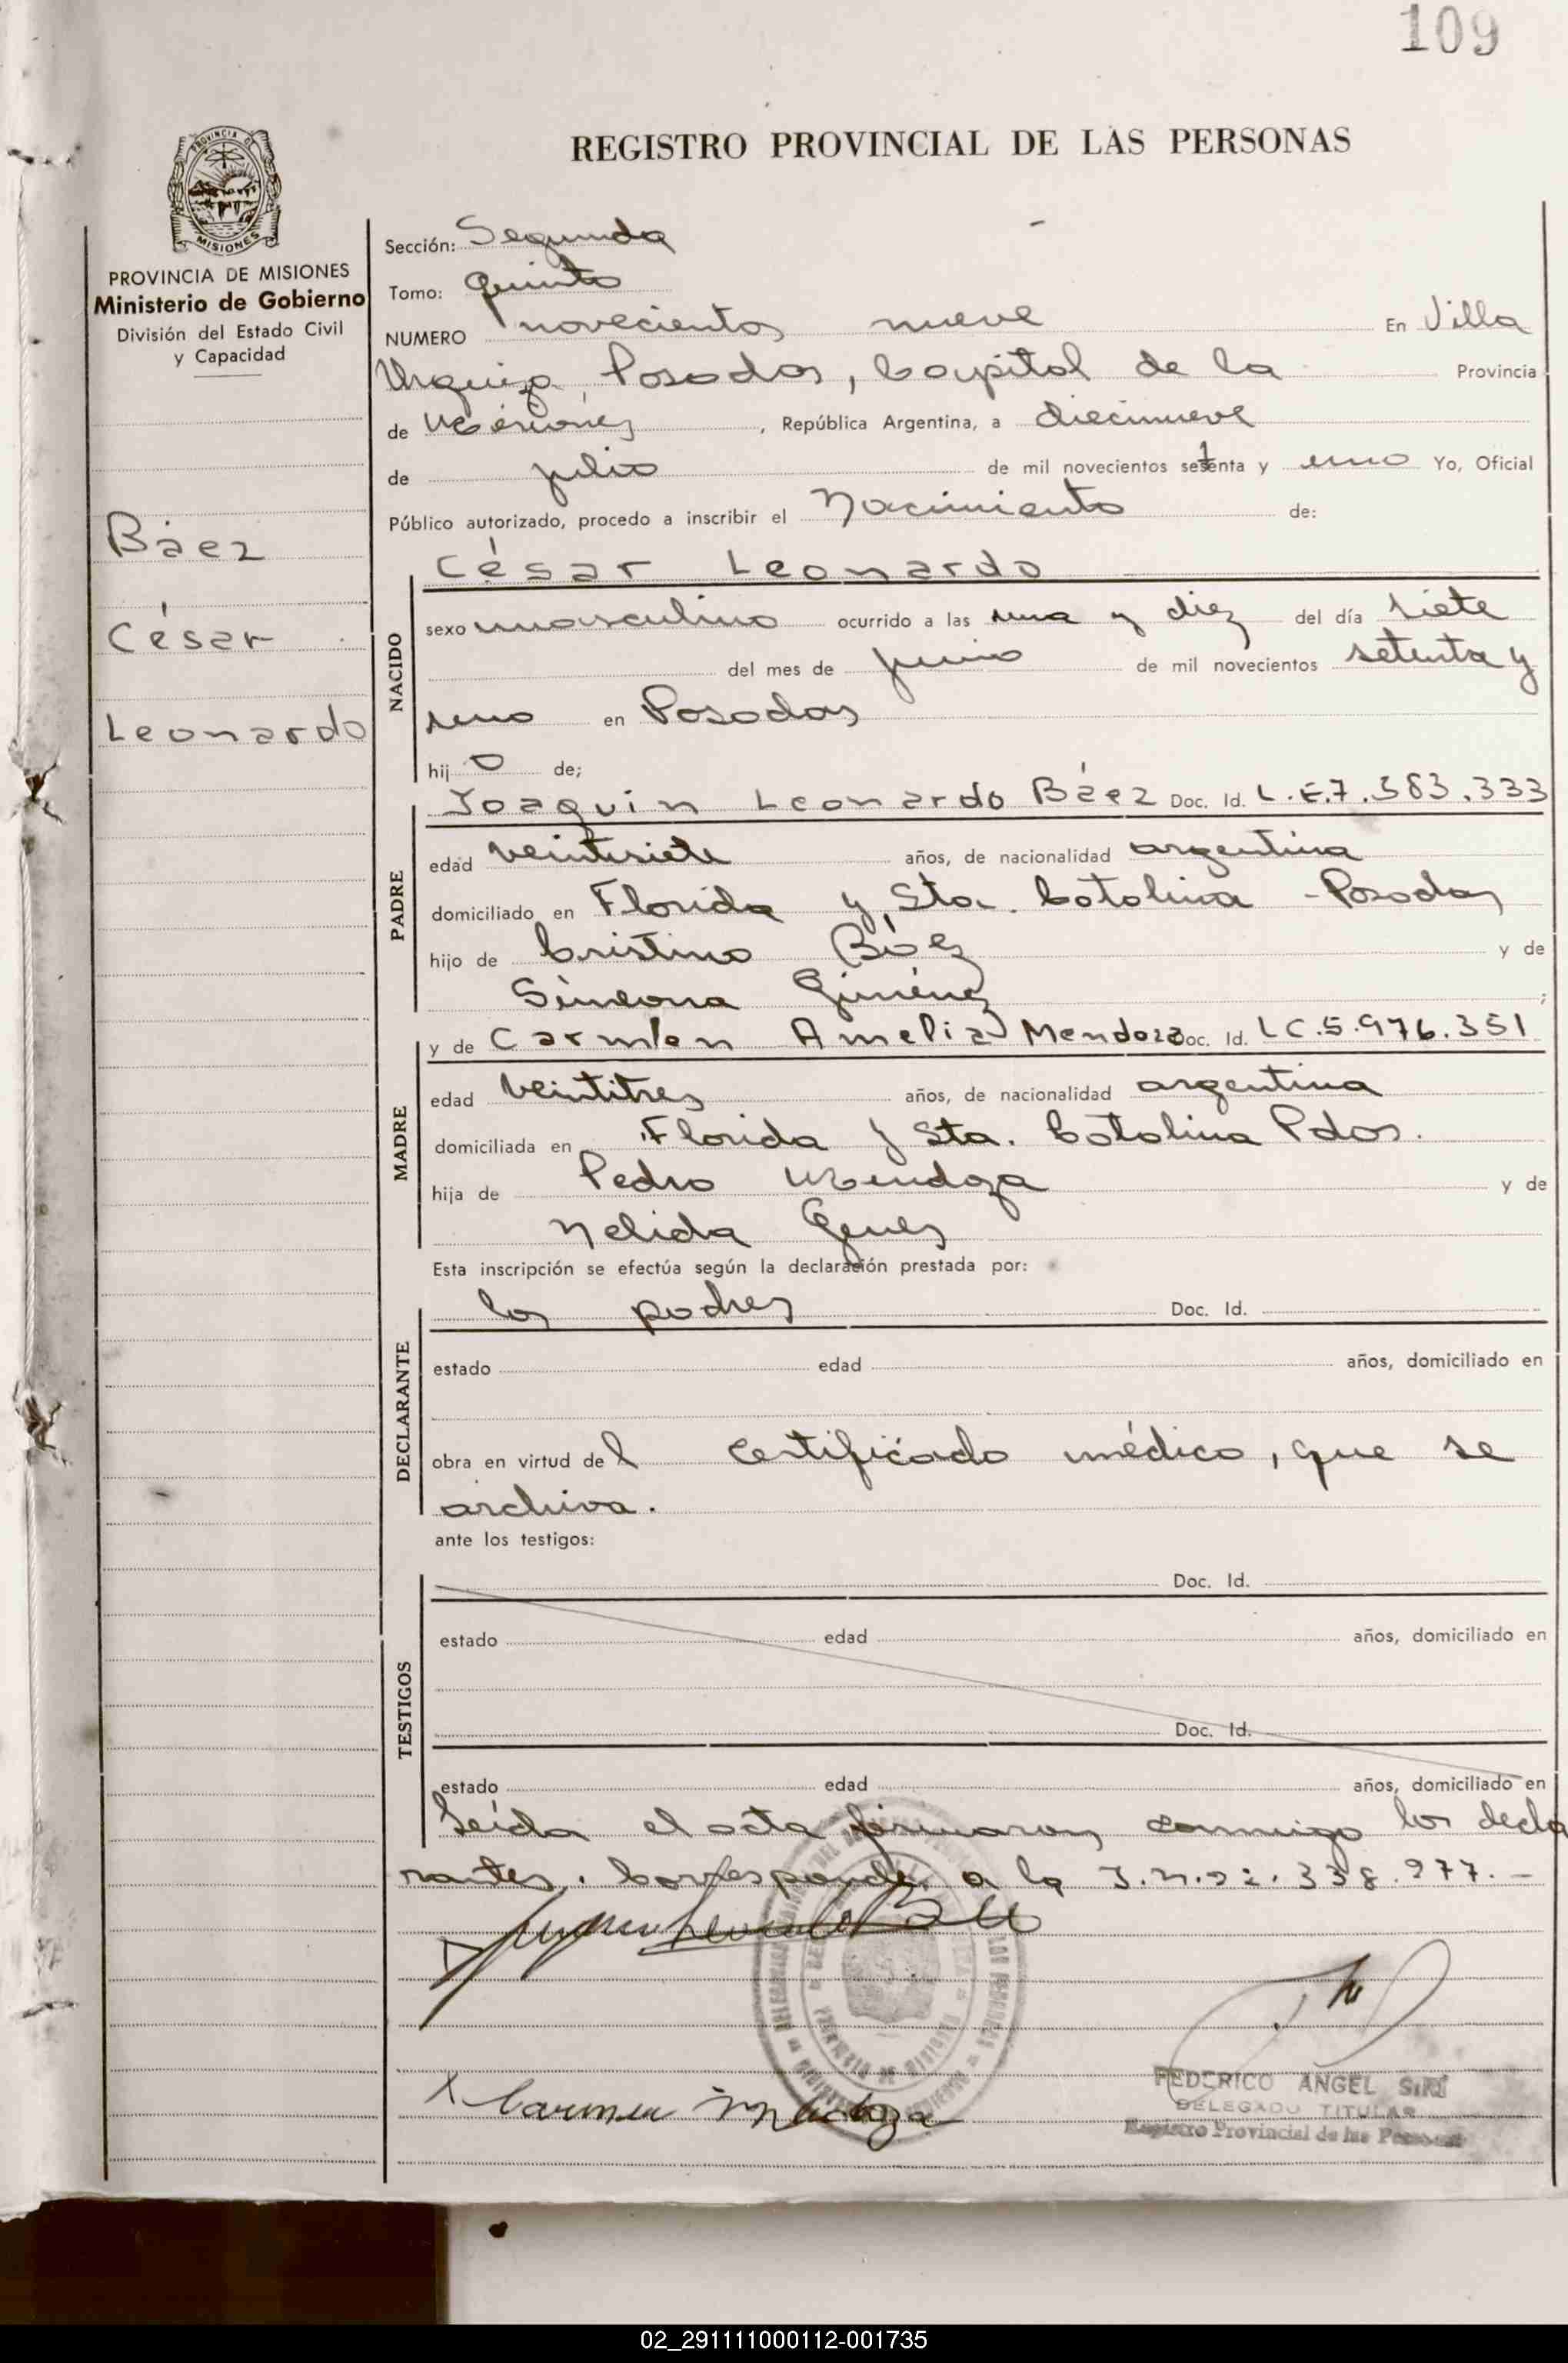 109
REGISTRO PROVINCIAL DE LAS PERSONAS
PROVINCIA DE MISIONES
Ministerio de Gobierno
División del Estado Civil
y Capacidad
Báez
César
Leonardo
Sección: Segunda
Tomo: quinto
NUMERO novecientos nueve En Villa
Urquiza, Posadas, Capital de la Provincia
de Misiones, República Argentina, a diecinueve
de julio de mil novecientos setenta y uno Yo, Oficial
Público autorizado, procedo a inscribir el Nacimiento de:
César Leonardo
NACIDO
sexo masculino ocurrido a las una y diez del día siete
del mes de junio de mil novecientos setenta y
uno en Posadas
hijo de;
PADRE
Joaquin Leonardo Báez Doc. Id. L.E.7.583.333
edad veintisiete años, de nacionalidad argentina
domiciliado en Florida y Sta. Catalina - Posadas
hijo de Cristino Báez y de
Simeona Giménez;
MADRE
y de Carmen Amelia Mendoza Doc. Id. LC.5.976.351
edad veintitres años, de nacionalidad argentina
domiciliada en Florida y Sta. Catalina Pdas.
hija de Pedro Mendoza y de
Nelida Genes
Esta inscripción se efectúa según la declaración prestada por:
DECLARANTE
los padres Doc. Id.
estado edad años, domiciliado en
obra en virtud del certificado médico, que se
archiva.
ante los testigos:
TESTIGOS
Doc. Id.
estado edad años, domiciliado en
Doc. Id.
estado edad años, domiciliado en
Leída el acta firmaron conmigo los decla
rantes. Corresponde a la I.n.º 22.338.977.-
Carmen Mendoza
FEDERICO ANGEL SIRI
DELEGADO TITULAR
Registro Provincial de las Personas
02_291111000112-001735